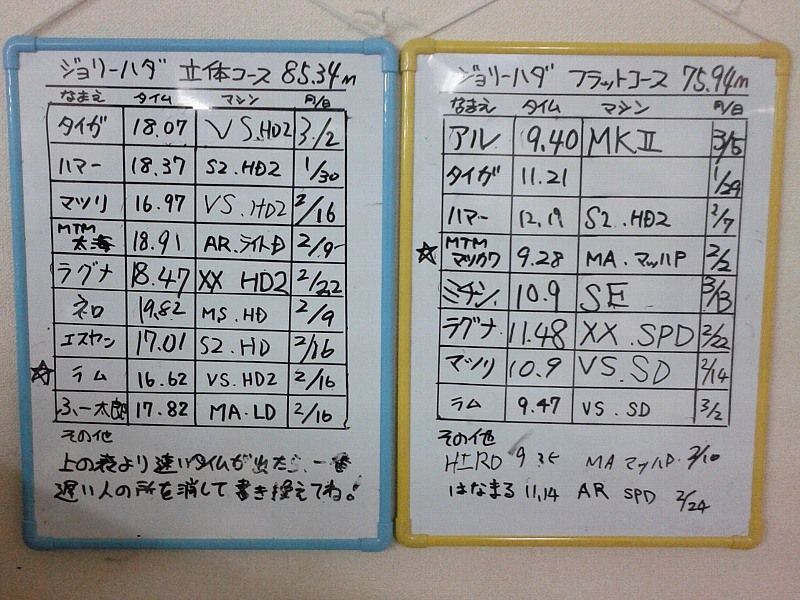 ジョリーハダ 立体コース 85.34m
なまえ タイム マシン 月/日
タイガ 18.07 VS.HD2 3/2
ハマー 18.37 S2.HD2 1/30
マツリ 16.97 VS.HD2 2/16
MTM 太海 18.91 AR.ライトD 2/9
ラグナ 18.47 XX HD2 2/22
ネロ 19.82 MS.HD 2/9
エスヤン 17.01 S2.HD 2/16
☆ ラム 16.62 VS.HD2 2/16
ふ、一太郎 17.82 MA.LD 2/16
その他
上の表より速いタイムが出たら、一番
遅い人の所を消して書き換えてね!
ジョリーハダ フラットコース 75.94m
なまえ タイム マシン 月/日
アル 9.40 MKII 3/5
タイガ 11.21 1/29
ハマー 12.19 S2.HD2 2/7
☆ MTM マツカワ 9.28 MA.マッハP 2/2
ミチン 10.9 SE 3/3
ラグナ 11.48 XX.SPD 2/22
マツリ 10.9 VS.SD 2/14
ラム 9.47 VS.SD 3/2
その他
HIRO 9.35 MA マッハP 2/10
はなまる 11.14 AR SPD 2/24